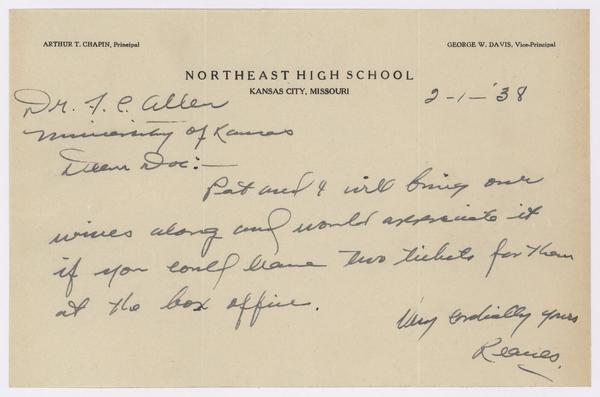 ARTHUR T. CHAPIN, Principal
GEORGE W. DAVIS, Vice-Principal
NORTHEAST HIGH SCHOOL
KANSAS CITY, MISSOURI
2-1-'38
Dr. F. C. Allen
University of Kansas
Dear Doc:-
Pat and I will bring our
wives along and would appreciate it
if you could leave two tickets for them
at the box office.
Very Cordially yours
Reaves.